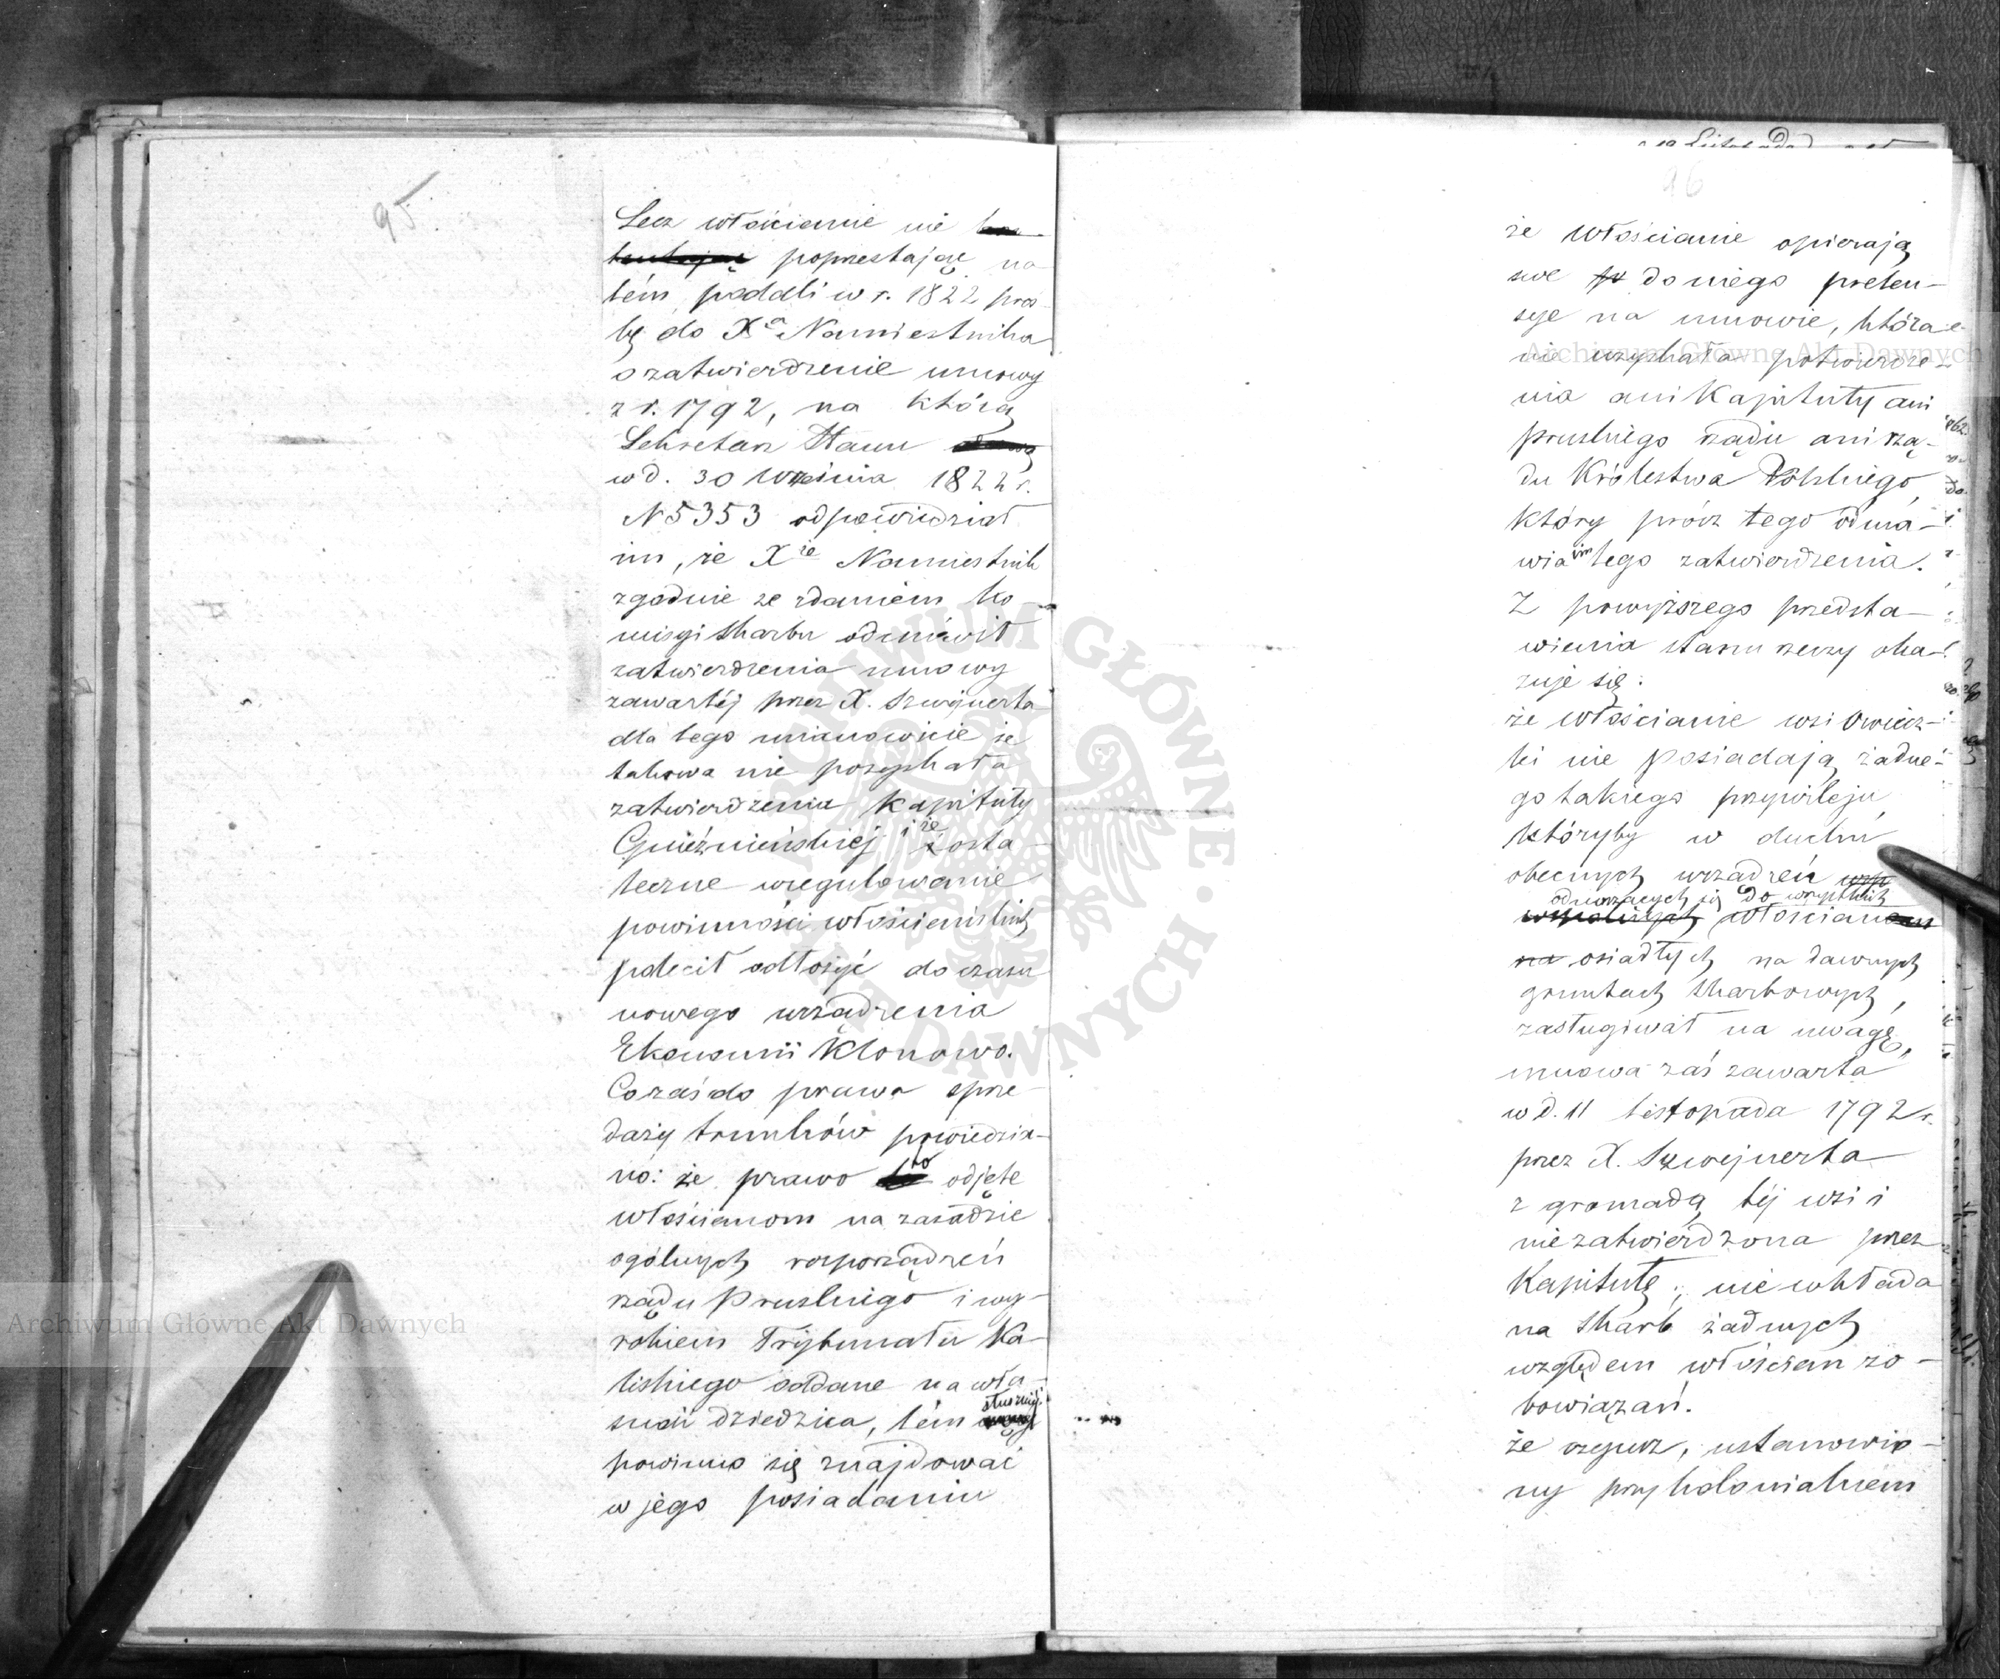 95
Lecz włościanie nie
poprzestając na
tém, podali w r. 1822 proź-
bę do Xa Namiestnika
o zatwierdzenie umowy
z r. 1792, na którą
Sekretarz Stanu
w d. 30 Września 1822 r.
N 5353 odpowiedział
im, że Xże Namiestnik
zgodnie ze zdaniem Ko-
misyi Skarbu odmówił
zatwierdzenia umowy
zawartéj przez X. Szwejnerta
dla tego mianowicie że
takowa nie pozyskała
zatwierdzenia Kapituły
Gnieźnieńskiéj i że osta-
teczne uregulowanie
powinności włościańskich
polecił odłożyć do czasu
nowego urządzenia
Ekonomii Klonowa.
Co zaś do prawa sprze-
daży trunków powiedzia-
no: że prawo to odjęte
włościanom na zasadzie
ogólnych rozporządzeń
rządu Pruskiego i wy-
rokiem Trybunału Ka-
liskiego oddane na wła-
sność dziedzica, tém słuszniéj
powinno się znajdować
w jego posiadaniu
96
że włościanie opierają
swe do niego preten-
sye na umowie, która
nie uzyskała potwierdze-
nia ani Kapituły ani
pruskiego rządu ani rzą-
du Królestwa Polskiego,
który prócz tego odma-
wia im tego zatwierdzenia.
Z powyższego przedsta-
wienia stanu rzeczy oka-
zuje się:
że włościanie wsi Owiecz-
ki nie posiadają żadne-
go takiego przywileju,
któryby w duchu
obecnych urządzeń
odnoszących się do wszystkich
włościan
osiadłych na dawnych
gruntach skarbowych,
zasługiwał na uwagę,
umowa zaś zawarta
w d. 11 listopada 1792 r.
przez X. Szwejnerta
z gromadą téj wsi i
niezatwierdzona przez
Kapitułę; nie wkłada
na Skarb żadnych
względem włościan zo-
bowiązań.
że czynsz, ustanowio-
ny przy kolonialném
Archiwum Główne Akt Dawnych
Archiwum Główne Akt Dawnych
ARCHIWUM GŁÓWNE AKT DAWNYCH